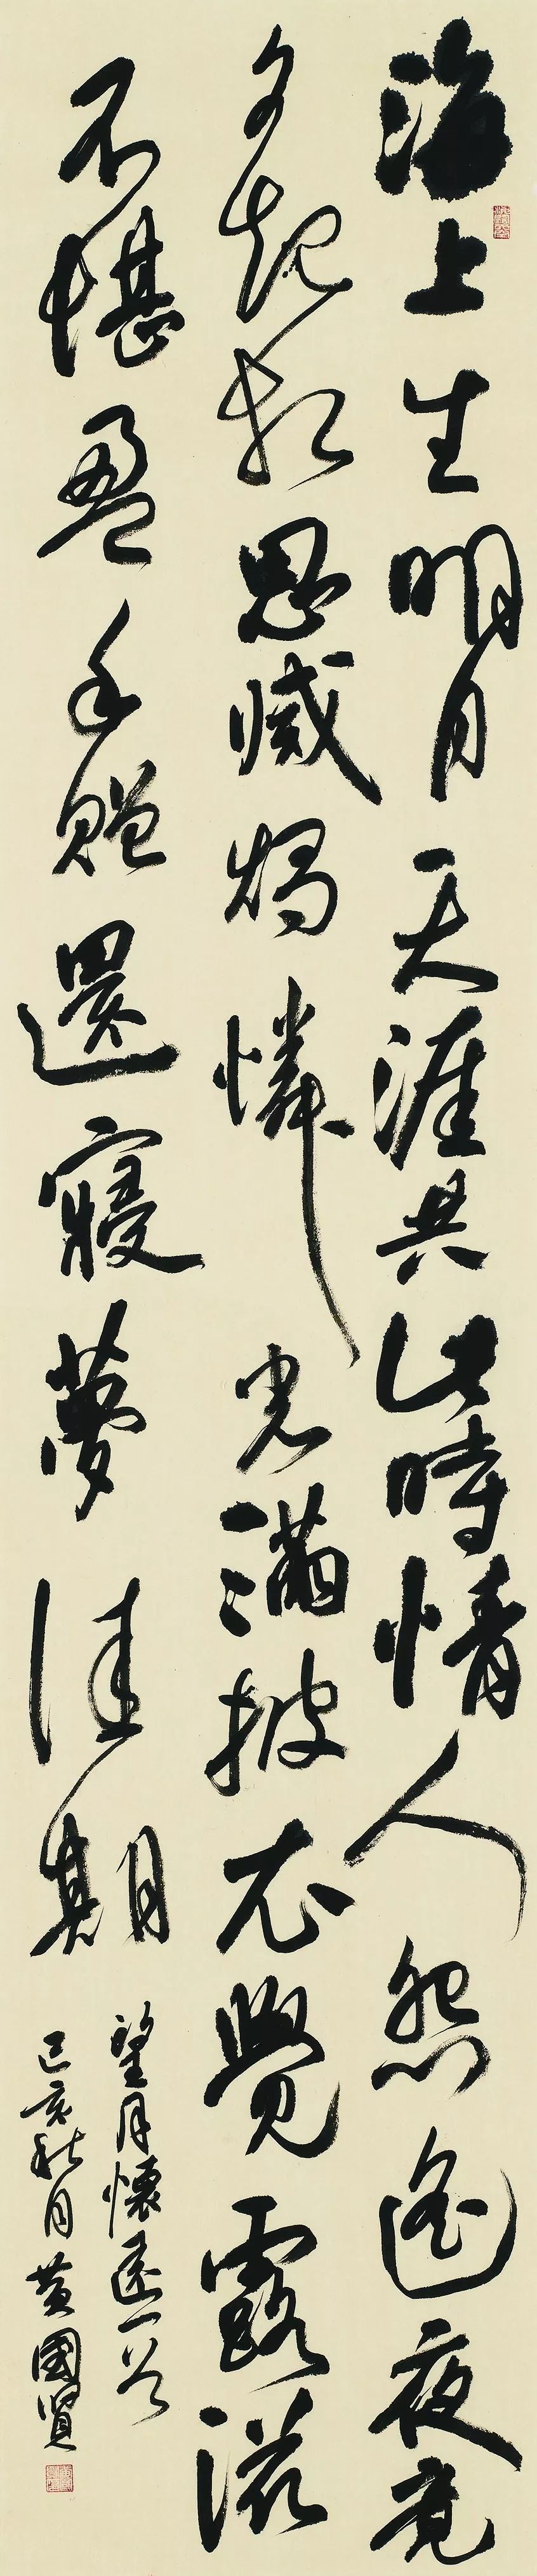 海上生明月天涯共此時情人怨遙夜竟
夕起相思滅燭憐光滿披衣覺露滋
不堪盈手贈還寢夢佳期
望月懷遠一首
己亥秋月黃國賢